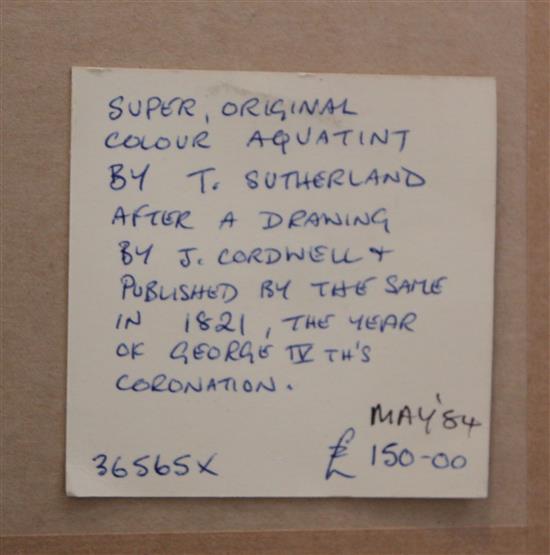 SUPER, ORIGINAL
COLOUR AQUATINT
BY T. SUTHERLAND
AFTER A DRAWING
BY J. CORDWELL +
PUBLISHED BY THE SAME
IN 1821, THE YEAR
OF GEORGE IV TH'S
CORONATION.
MAY '84
36565X £150-00